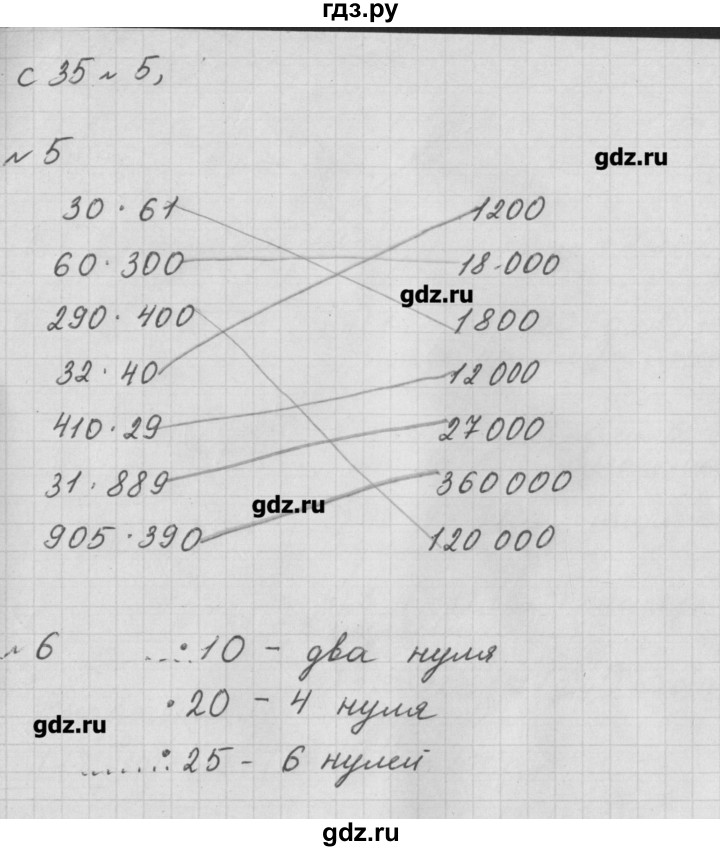 гдз.ру
с 35 № 5,
№ 5
gdz.ru
30 · 61 1200
60 · 300 18 000
gdz.ru
290 · 400 1800
32 · 40 12 000
410 · 29 27 000
31 · 889 360 000
gdz.ru
905 · 390 120 000
№ 6 .....:10 – два нуля
·20 – 4 нуля
gdz.ru
......:25 – 6 нулей
gdz.ru